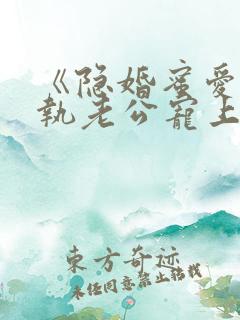 《隐婚蜜愛
執老公寵上
東方奇迹
未经同意禁止转载